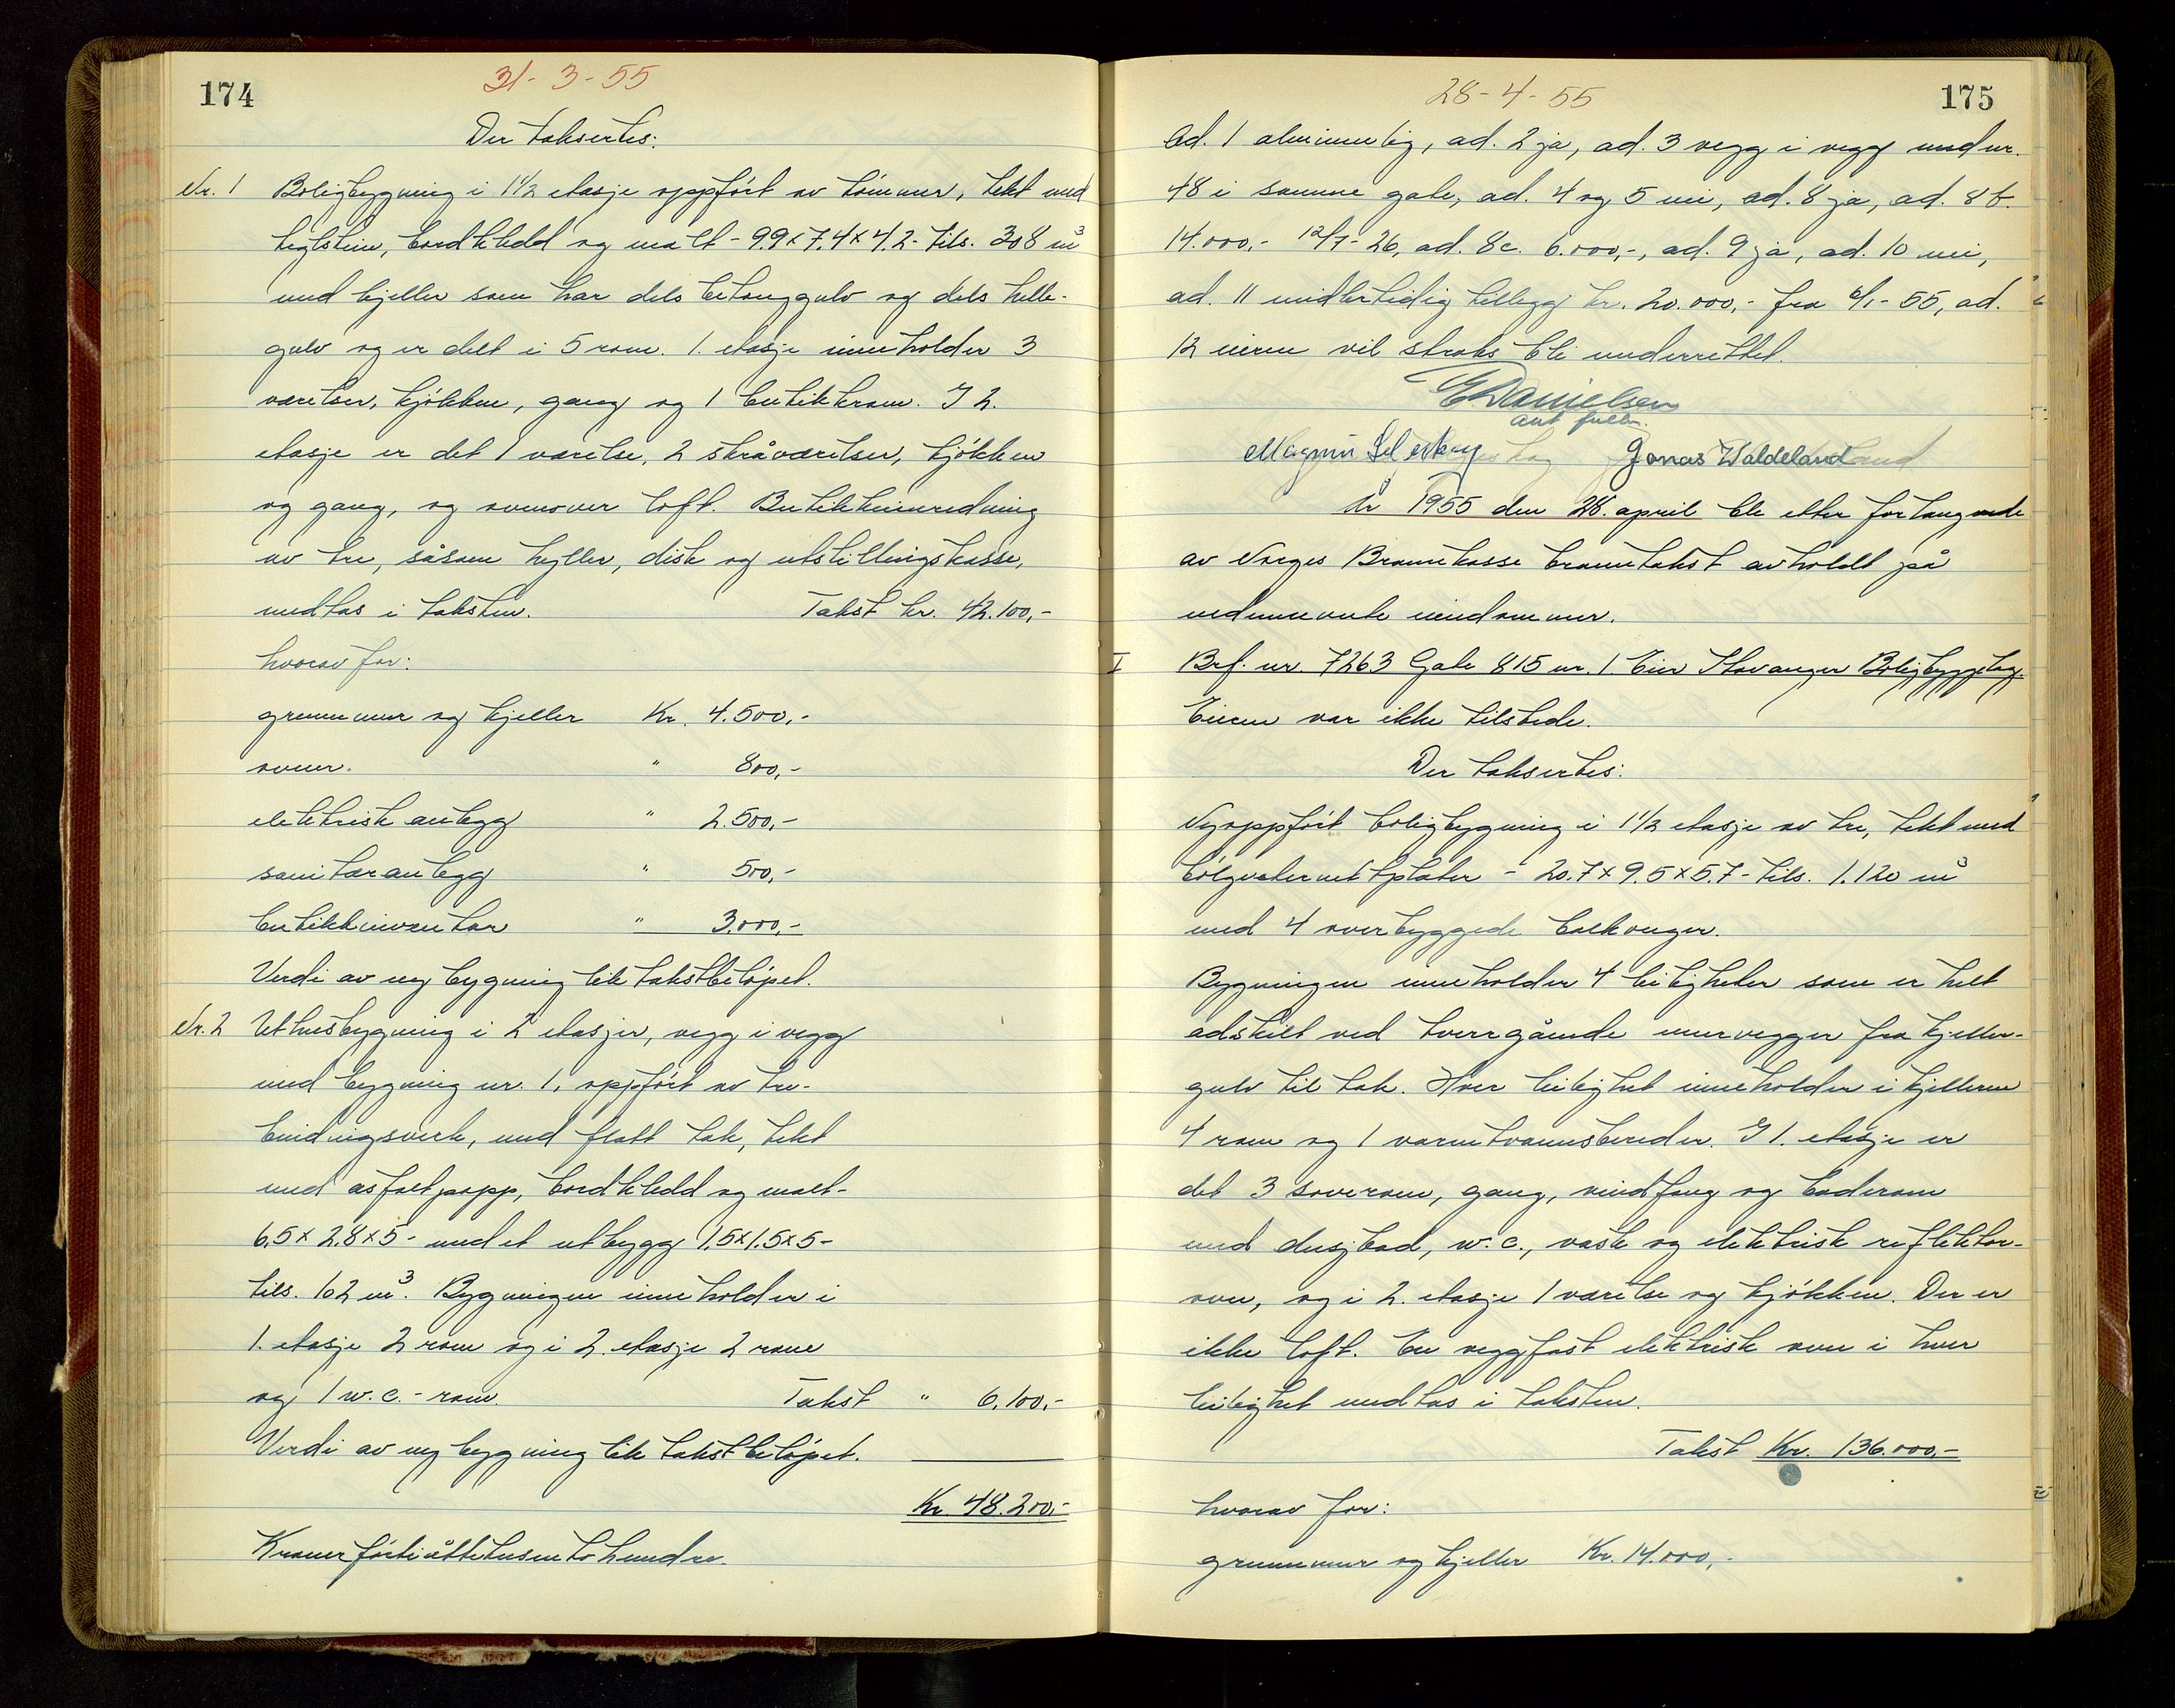 174
31-3-55
Der taksertes:
Nr. 1 Boligbygning i 1½ etasje oppført av tømmer, tekt med
teglstein, bordkledd og malt - 9.9 x 7.4 x 4.2 - tils. 308 m³
med kjeller som har dels betonggulv og dels helle-
gulv og er delt i 5 rom. 1. etasje inneholder 3
værelser, kjøkken, gang og 1 butikkrom. I 2.
etasje er det 1 værelse, 2 skråværelser, kjøkken
og gang, og ovenover loft. Butikkinnredning
av tre, såsom hyller, disk og utstillingskasse,
medtas i taksten. Takst kr. 42.100,-
hvorav for:
grunnmur og kjeller Kr. 4.500,-
ovner. " 800,-
elektrisk anlegg " 2.500,-
sanitæranlegg " 500,-
butikkinventar " 3.000,-
Verdi av ny bygning lik takstbeløpet.
Nr. 2 Uthusbygning i 2 etasjer, vegg i vegg
med bygning nr. 1, oppført av tre-
bindingsverk, med flatt tak, tekt
med asfaltpapp, bordkledd og malt -
6.5 x 2.8 x 5 - med et utbygg 1.5 x 1.5 x 5 -
tils. 102 m³. Bygningen inneholder i
1. etasje 2 rom og i 2. etasje 2 rom
og 1 w.c.-rom. Takst " 6.100,-
Verdi av ny bygning lik takstbeløpet.
Kr. 48.200,-
Kroner førtiåttetusentohundre.
175
28-4-55
Ad. 1 alminnelig, ad. 2 ja, ad. 3 vegg i vegg med nr.
48 i samme gate, ad. 4 og 5 nei, ad. 8 ja, ad. 8 b.
14.000,- 12/7-26, ad. 8c. 6.000,-, ad. 9 ja, ad. 10 nei,
ad. 11 midlertidig tillegg kr. 20.000,- fra 6/1-55, ad.
12 eieren vil straks bli underrettet.
E Danielsen
aut fullm.
Magnus Jonas Waldeland
År 1955 den 28. april ble etter forlangende
av Norges Brannkasse branntakst avholdt på
nedennevnte eiendommer.
I Brf. nr. 7263 Gate 815 nr. 1. Eier Stavanger Boligbyggelag.
Eieren var ikke tilstede.
Der taksertes:
Nyoppført boligbygning i 1½ etasje av tre, tekt med
bølgeeternitplater - 20.7 x 9.5 x 5.7 - tils. 1.120 m³
med 4 overbyggede balkonger.
Bygningen inneholder 4 leiligheter som er helt
adskilt ved tverrgående murvegger fra kjeller-
gulv til tak. Hver leilighet inneholder i kjelleren
4 rom og 1 varmtvannsbereder. I 1. etasje er
det 3 soverom, gang, vindfang og baderom
med dusjbad, w.c., vask og elektrisk reflektor-
ovn, og i 2. etasje 1 værelse og kjøkken. Der er
ikke loft. En veggfast elektrisk ovn i hver
leilighet medtas i taksten.
Takst Kr. 136.000,-
hvorav for:
grunnmur og kjeller Kr. 14.000,-